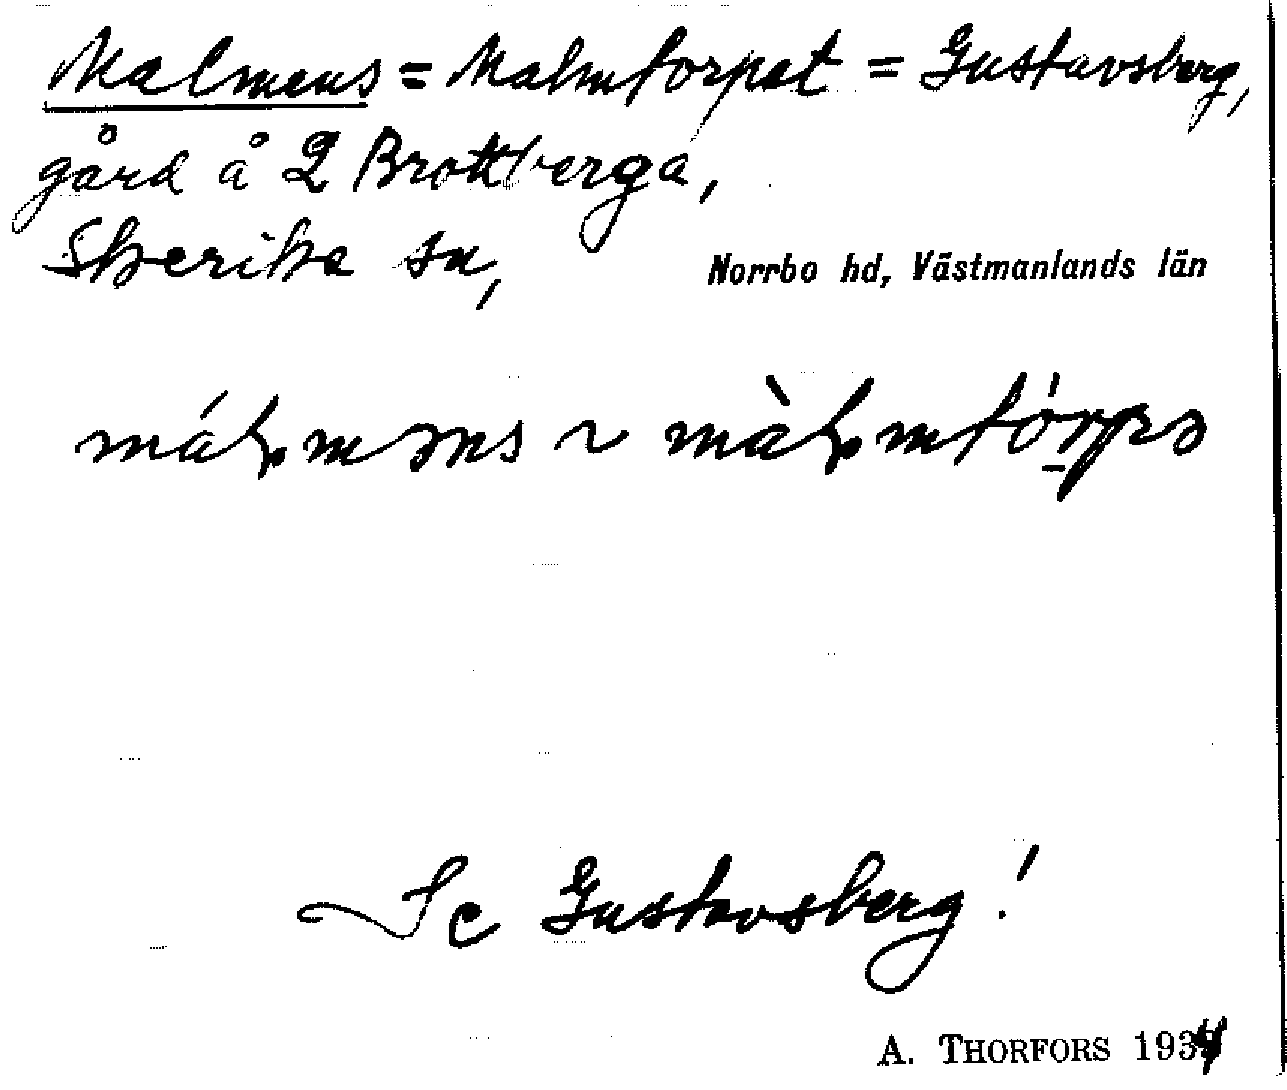 Malmens = Malmtorpet = Gustavsberg,
gård å 2 Brottberga,
Skerike sn,
Norrbo hd, Västmanlands län
Se Gustavsberg!
A. THORFORS 1934